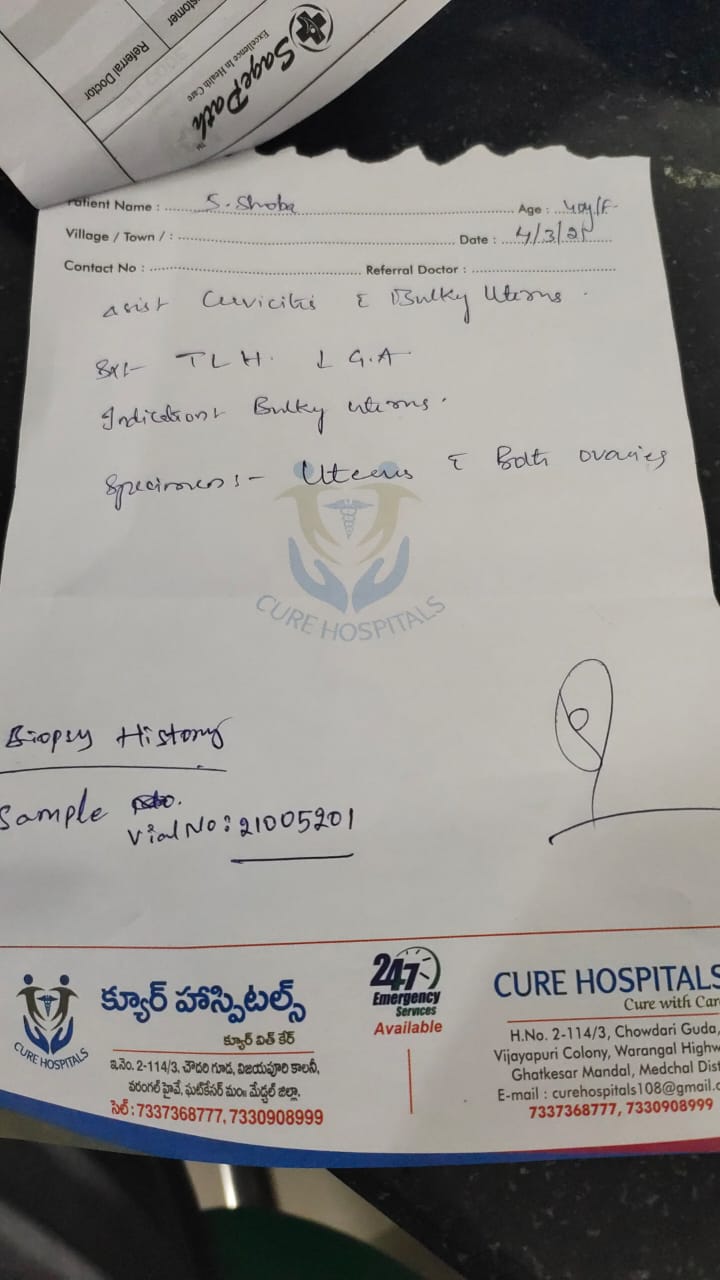 stomer
Referral Doctor
SagePath TM
Excellence In Health Care
Patient Name : S. Shoba Age : 40y/F
Village / Town / : Date : 4/3/21
Contact No : Referral Doctor :
Cervicitis & Bulky Uterus.
TLH. G.A
Indication:- Bulky uterus.
Specimens:- Uterus & Both ovaries
CURE HOSPITALS
Biopsy History
Sample
Vial No: 21005201
క్యూర్ హాస్పిటల్స్
క్యూర్ విత్ కేర్
CURE HOSPITALS
ఇ.నెం. 2-114/3, చౌదరి గూడ, విజయపూరి కాలనీ,
వరంగల్ హైవే, ఘట్‌కేసర్ మం॥ మేడ్చల్ జిల్లా.
సెల్ : 7337368777, 7330908999
24/7
Emergency
Services
Available
CURE HOSPITALS
Cure with Car
H.No. 2-114/3, Chowdari Guda,
Vijayapuri Colony, Warangal Highw
Ghatkesar Mandal, Medchal Dist
E-mail : curehospitals108@gmail.c
7337368777, 7330908999